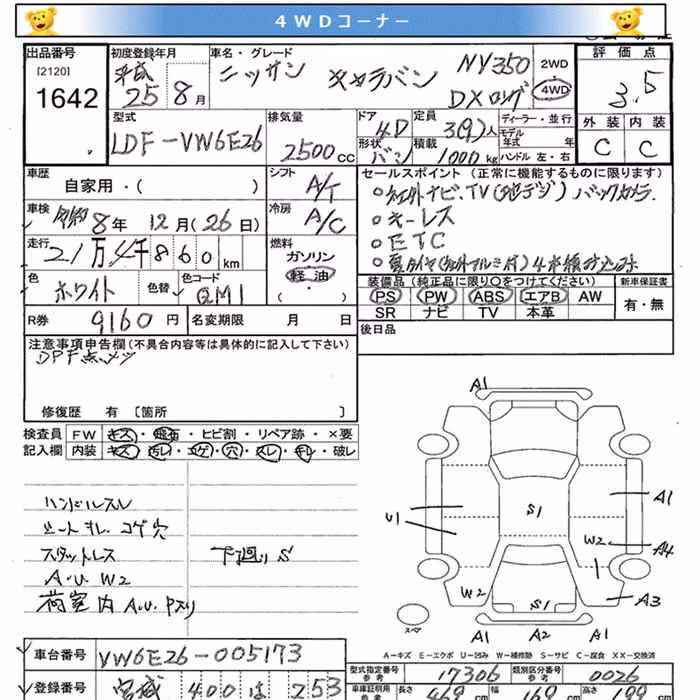 4WDコーナー
出品番号 初度登録年月 車名・グレード 2WD 評価点
[2120] 平成 ニッサン キャラバン NV350
1642 25年8月 DXロング 4WD 3.5
型式 排気量 ドア 定員 ディーラー・並行 外装 内装
LDF-VW6E26 2500cc 4D 3(9)人 モデル年式 年 C C
形状 積載
バン 1000kg ハンドル 左・右
車歴 シフト セールスポイント (正常に機能するものに限ります)
自家用・( ) A/T ○社外ナビ、TV(地デジ) バックカメラ
車検 冷房 ○キーレス
令和8年12月(26日) A/C ○ETC
走行 燃料 ○夏タイヤ(社外アルミ付)4本
21万4千860km ガソリン
軽油
色 色替 色コード 装備品 (純正品に限り○をつけてください) 新車保証書
ホワイト QM1 ( ・ ) PS PW ABS エアB AW 有・無
SR ナビ TV 本革
R券 9160円 名変期限 月 日 後日品
注意事項申告欄(不具合内容等は具体的に記入して下さい)
DPF点メツ
修復歴 有 〔箇所 〕
検査員 FW キズ・飛石・ヒビ割・リペア跡・×要
記入欄 内装 キズ・汚レ・コゲ・穴・スレ・キレ・破レ
ハンドルスレ
シートキレ コゲ穴
スタットレス 下廻りS
A.U. W2
荷室内 A.U. Pスリ
A1
S1
A1
U1
W2 A4
W2
A3
S1
スペア
A1 A2 A1
A-キズ E-エクボ U-凹み W-補修跡 S-サビ C-腐食 XX-交換済
車台番号 VW6E26-005173
型式指定番号 参考 17306 類別区分番号 参考 0026
登録番号 宮城 400 は 253
車庫証明用 参考 長さ 469 cm 幅 169 cm 高さ 199 cm